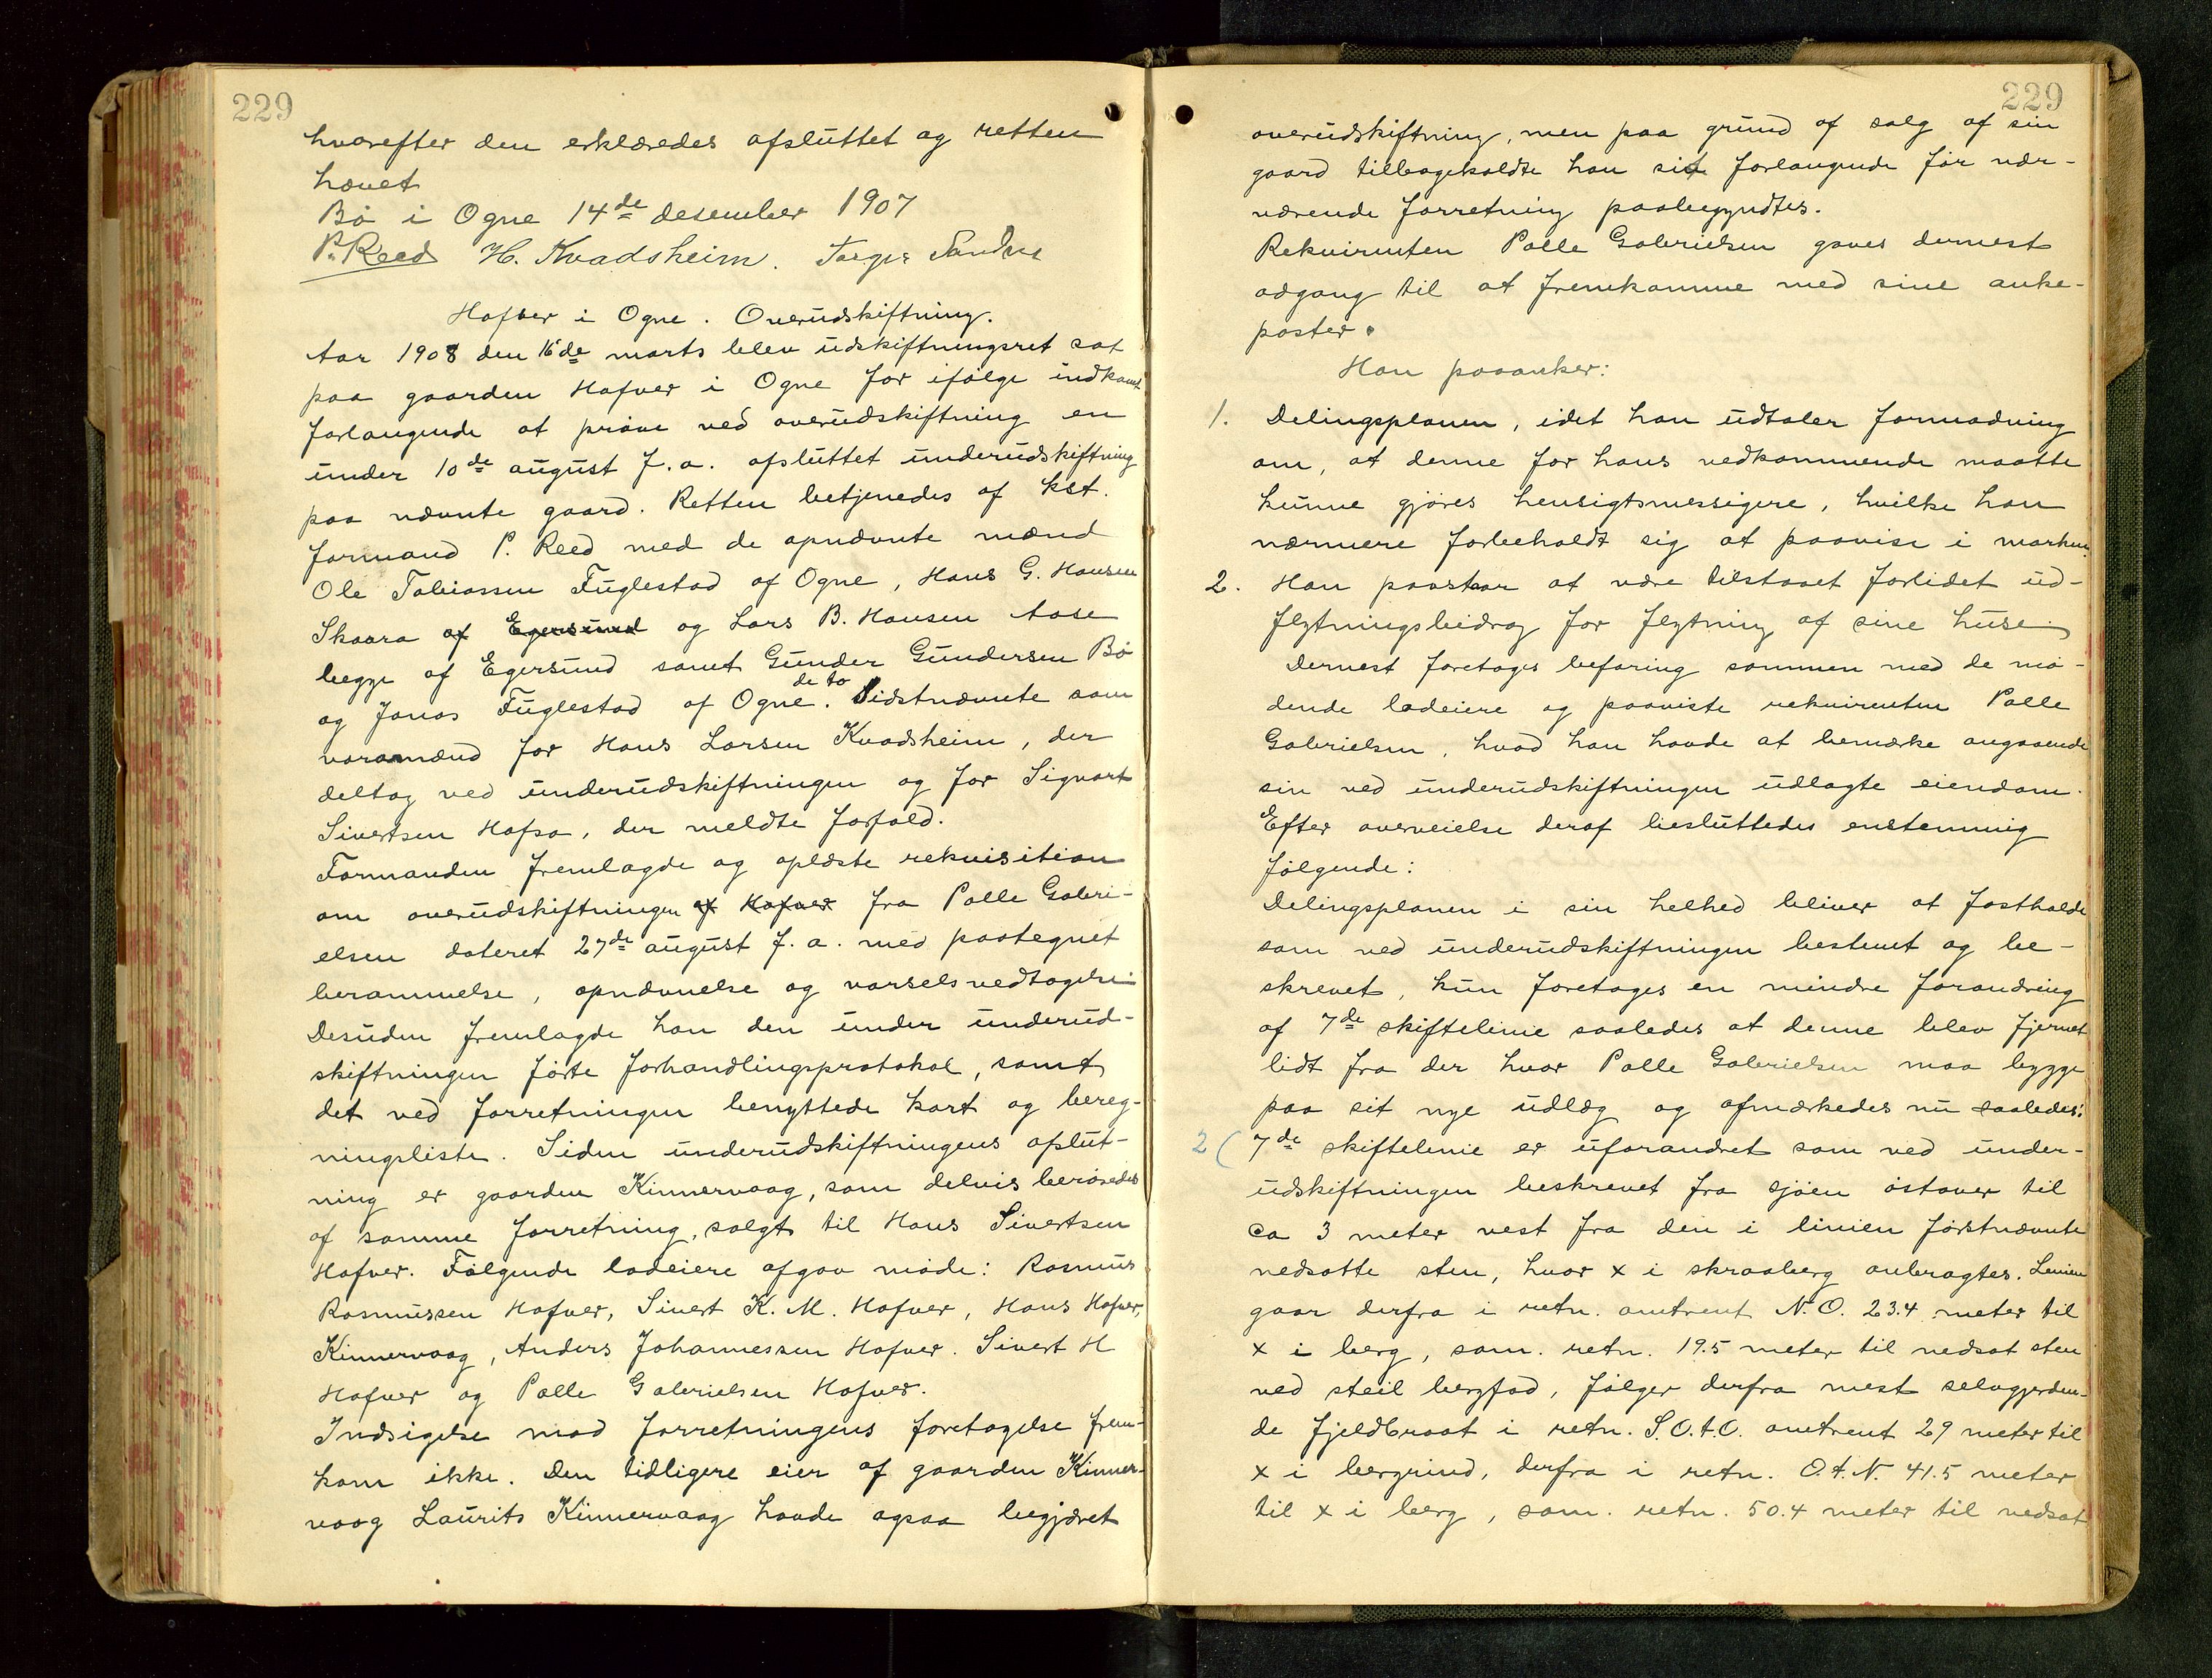 229
hvorefter den erklæredes afsluttet og retten
hævet
Bö i Ogne 14de desember 1907
P. Reed H. Kvadsheim. Torger
Hafver i Ogne. Overudskiftning.
Aar 1908 den 16de marts blev udskiftningsret sat
paa gaarden Hafver i Ogne for ifölge indkomt
forlangende at pröve ved overudskiftning en
under 10de august f. a. afsluttet underudskiftning
paa nævnte gaard. Retten betjenedes af kst.
formand P. Reed med de opnævnte mænd
Ole Tobiassen Fuglestad af Ogne, Hans G. Hansen
Skaara af Egersund og Lars B. Hansen Aase
begge af Egersund samt Gunder Gundersen Bö
og Jonas Fuglestad af Ogne. de to Sidstnævnte som
varamænd for Hans Larsen Kvadsheim, der
deltog ved underudskiftningen og for Sigvart
Sivertsen Hafsa, der meldte forfald.
Formanden fremlagde og oplæste rekvisition
om overudskiftningen af Hafver fra Palle Gabri-
elsen dateret 27de august f. a. med paategnet
berammelse, opnævnelse og varselsvedtagelse
Desuden fremlagde han den under underud-
skiftningen förte forhandlingsprotokol, samt
det ved forretningen benyttede kart og bereg-
ningsliste. Siden underudskiftningens afslut-
ning er gaarden Kinnervaag, som delvis beröredes
af samme forretning, solgt til Hans Sivertsen
Hafver. Fölgende lodeiere afgav möde: Rasmus
Rasmussen Hafver, Sivert K. M. Hafver, Hans Hafver,
Kinnervaag, Anders Johannessen Hafver. Sivert H
Hafver og Palle Gabrielsen Hafver.
Indsigelse mod forretningens foretagelse frem-
kom ikke. Den tidligere eier af gaarden Kinner-
vaag Laurits Kinnervaag havde ogsaa begjæret
229
overudskiftning, men paa grund af salg af sin
gaard tilbagekaldte han sit forlangende för nær-
værende forretning paabegyndtes.
Rekvirenten Palle Gabrielsen gaves dernest
adgang til at fremkomme med sine anke-
poster.
Han paaanker:
1. Delingsplanen, idet han udtaler formodning
om, at denne for hans vedkommende maatte
kunne gjöres hensigtsmessigere, hvilke han
nærmere forbeholdt sig at paavise i marken.
2. Han paastaar at være tilstaaet forlidet ud-
flytningsbidrag for flytning af sine huse
Dernest foretoges befaring sammen med de mö-
dende lodeiere og paaviste rekvirenten Palle
Gabrielsen, hvad han havde at bemærke angaaende
sin ved underudskiftningen udlagte eiendom.
Efter overveielse deraf besluttedes enstemmig
fölgende:
Delingsplanen i sin helhed bliver at fastholde
som ved underudskiftningen bestemt og be-
skrevet, kun foretages en mindre forandring
af 7de skiftelinie saaledes at denne blev fjernet
lidt fra der hvor Palle Gabrielsen maa bygge
paa sit nye udlæg og afmærkedes nu saaledes:
2 ( 7de skiftelinie er uforandret som ved under-
udskiftningen beskrevet fra sjöen östover til
ca 3 meter vest fra den i linien förstnævnte
nedsatte sten, hvor x i skraaberg anbragtes. Linien
gaar derfra i retn. omtrent N. O. 23.4 meter til
x i berg, sam. retn. 19.5 meter til nedsat sten
ved steil bergfod, fölger derfra mest selvgjerden-
de fjeldbraat i retn. S.O.t.O. omtrent 29 meter til
x i bergrind, derfra i retn. O.t.N. 41.5 meter
til x i berg, sam. retn. 50.4 meter til nedsat